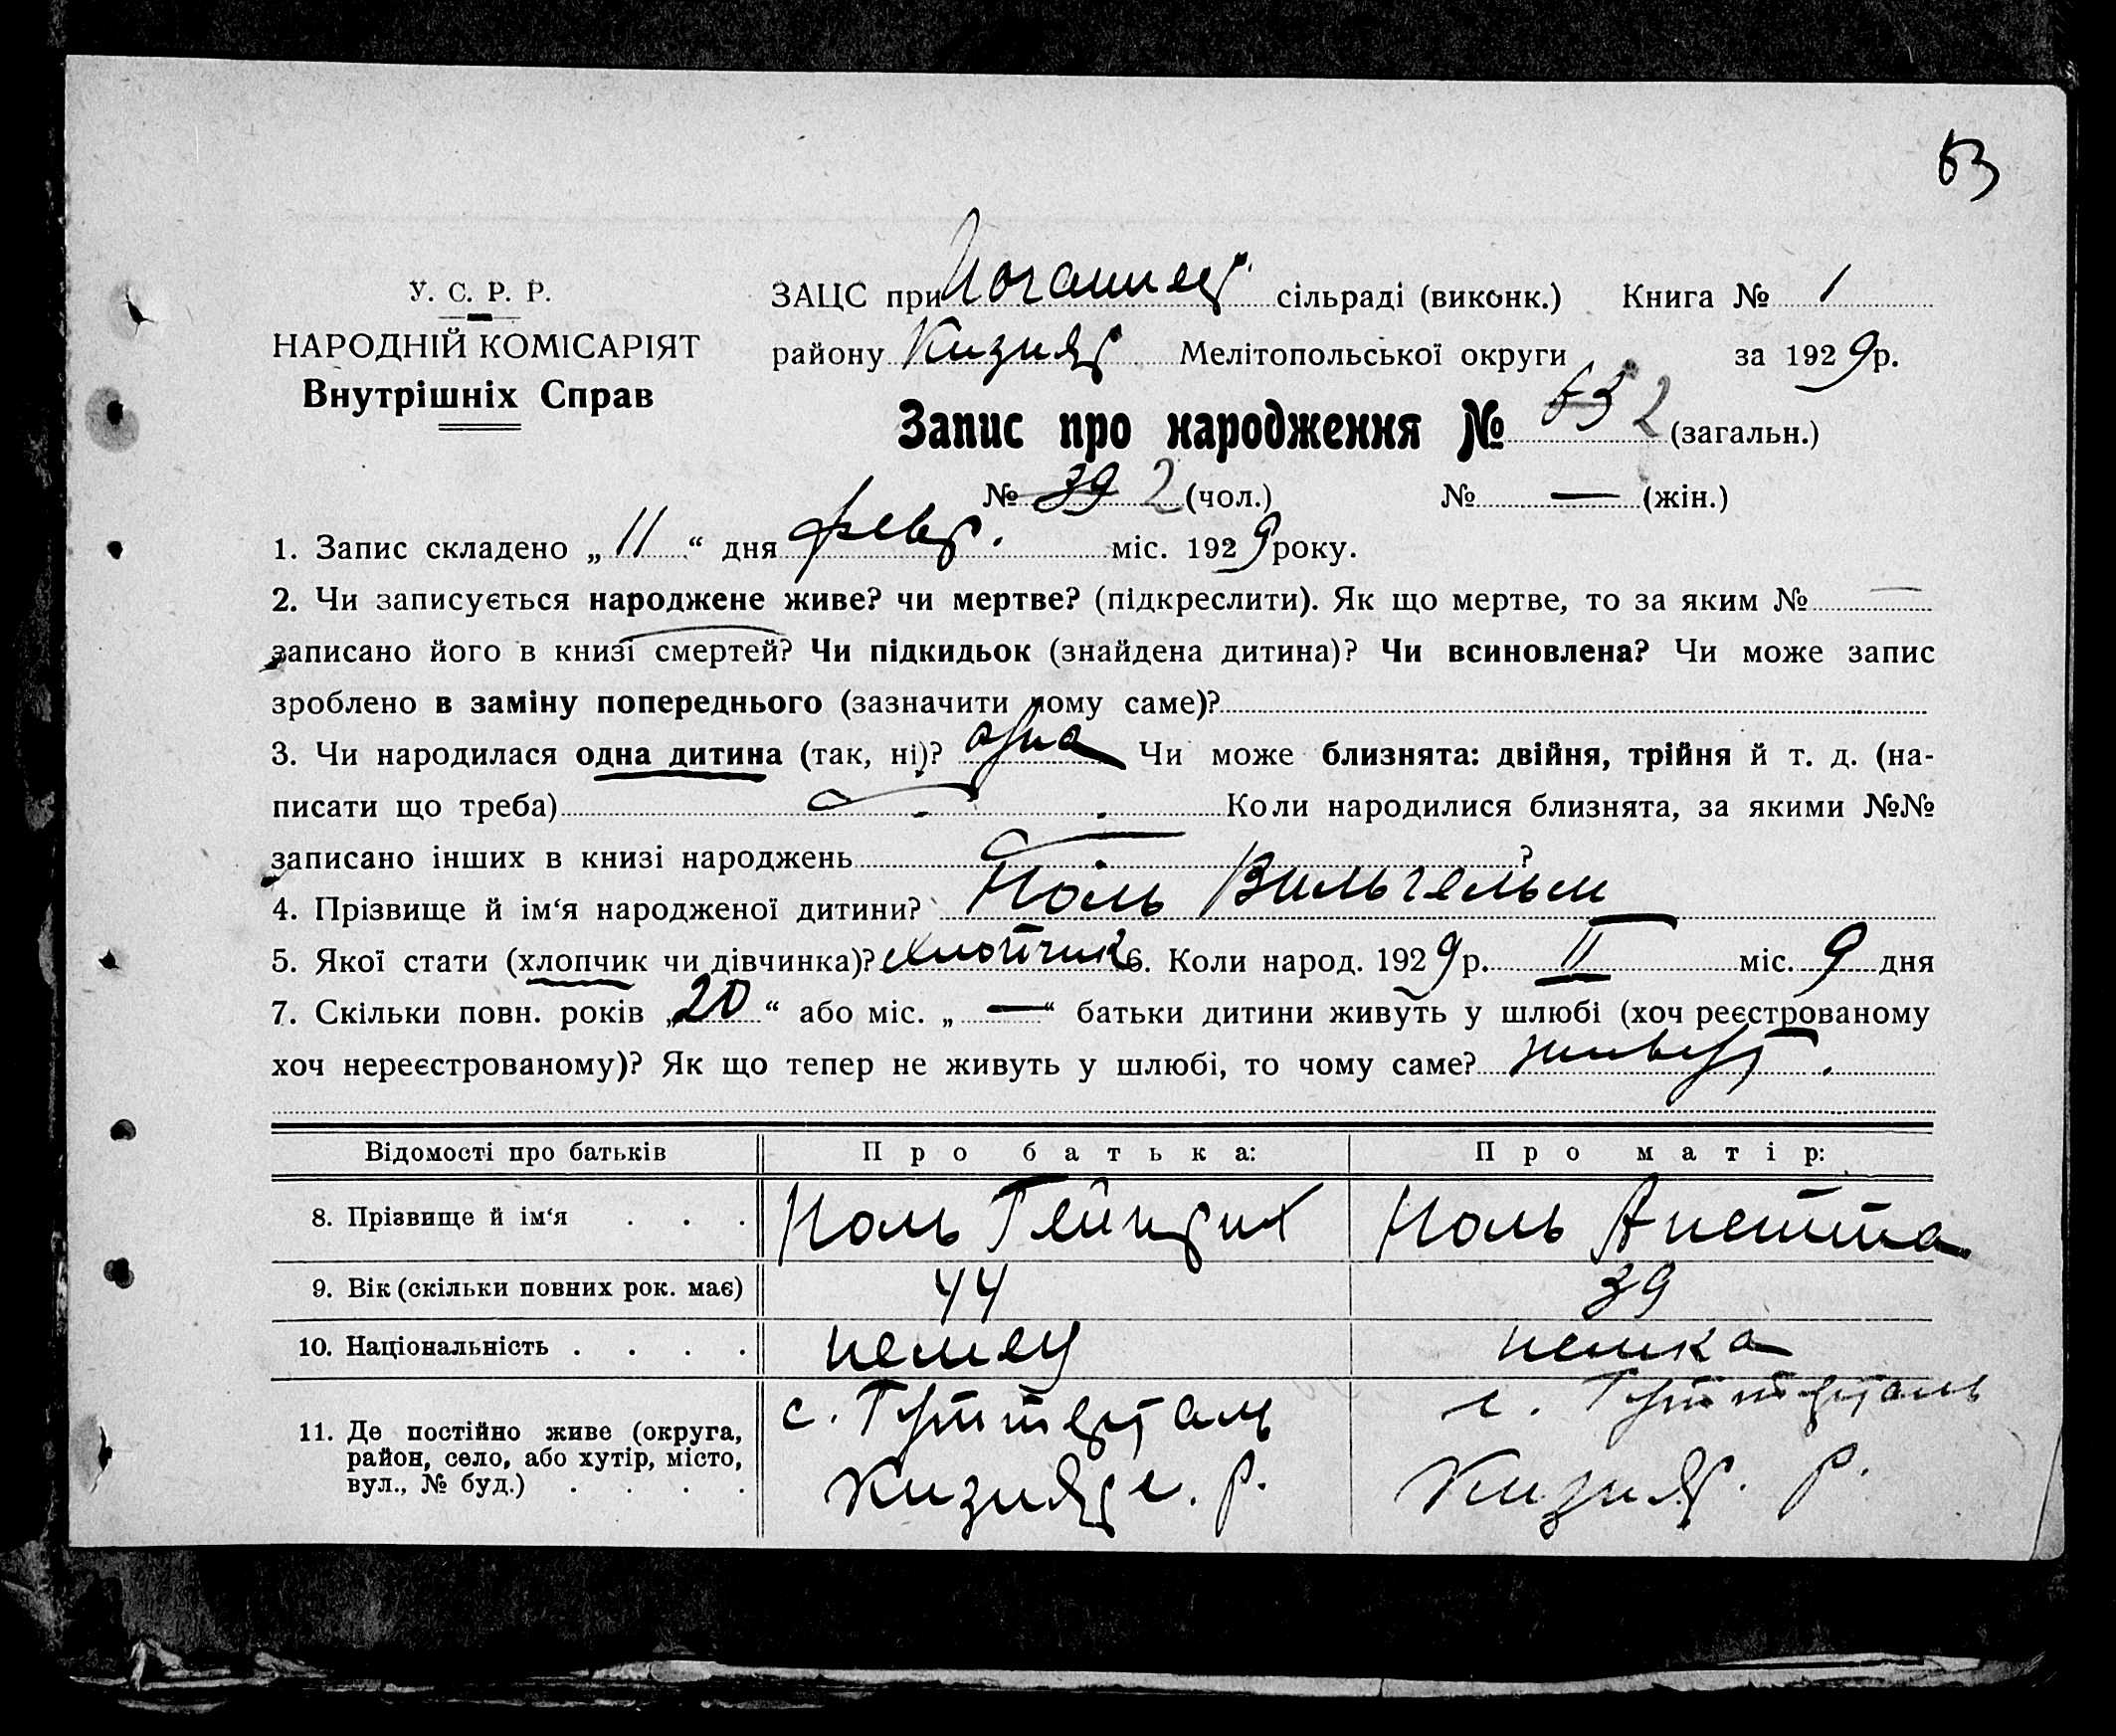 63
У. С. Р. Р.
НАРОДНІЙ КОМІСАРІЯТ
Внутрішніх Справ
ЗАЦС при сільраді (виконк.) Книга № 1
району Кизияр Мелітопольської округи за 1929 р.
Запис про народження № 63 2 (загальн.)
№ 39 2 (чол.) № — (жін.)
1. Запис складено „ 11 “ дня февр. міс. 1929 року.
2. Чи записується народжене живе? чи мертве? (підкреслити). Як що мертве, то за яким № —
записано його в книзі смертей? Чи підкидьок (знайдена дитина)? Чи всиновлена? Чи може запис
зроблено в заміну попереднього (зазначити чому саме)?
3. Чи народилася одна дитина (так, ні)? одна Чи може близнята: двійня, трійня й т. д. (на-
писати що треба) Коли народилися близнята, за якими №№
записано інших в книзі народжень ?
4. Прізвище й ім‘я народженої дитини? Ноль Вильгельм
5. Якої стати (хлопчик чи дівчинка)? хлопчик 6. Коли народ. 1929 р. II міс. 9 дня
7. Скільки повн. років „ 20 “ або міс. „ — “ батьки дитини живуть у шлюбі (хоч реєстрованому
хоч нереєстрованому)? Як що тепер не живуть у шлюбі, то чому саме? живут.
Відомості про батьків Про батька: Про матір:
8. Прізвище й ім‘я . . . Ноль Гейнрих Ноль Анетта
9. Вік (скільки повних рок. має) 44 39
10. Національність . . . . немец немка
11. Де постійно живе (округа, район, село, або хутір, місто, вул., № буд.) . . . . с. Гуттерталь Кизияр. р. с. Гуттерталь Кизияр. р.